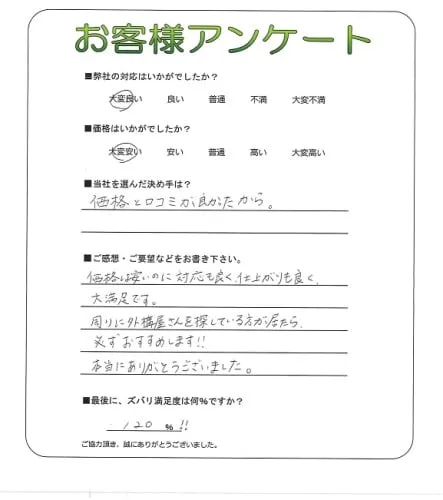 お客様アンケート
■弊社の対応はいかがでしたか?
大変良い 良い 普通 不満 大変不満
■価格はいかがでしたか?
大変安い 安い 普通 高い 大変高い
■当社を選んだ決め手は?
価格と口コミが良かったから。
■ご感想・ご要望などをお書き下さい。
価格は安いのに対応も良く、仕上がりも良く、
大満足です。
周りに外構屋さんを探している方が居たら、
必ずおすすめします!!
本当にありがとうございました。
■最後に、ズバリ満足度は何%ですか?
120 % !!
ご協力頂き、誠にありがとうございました。